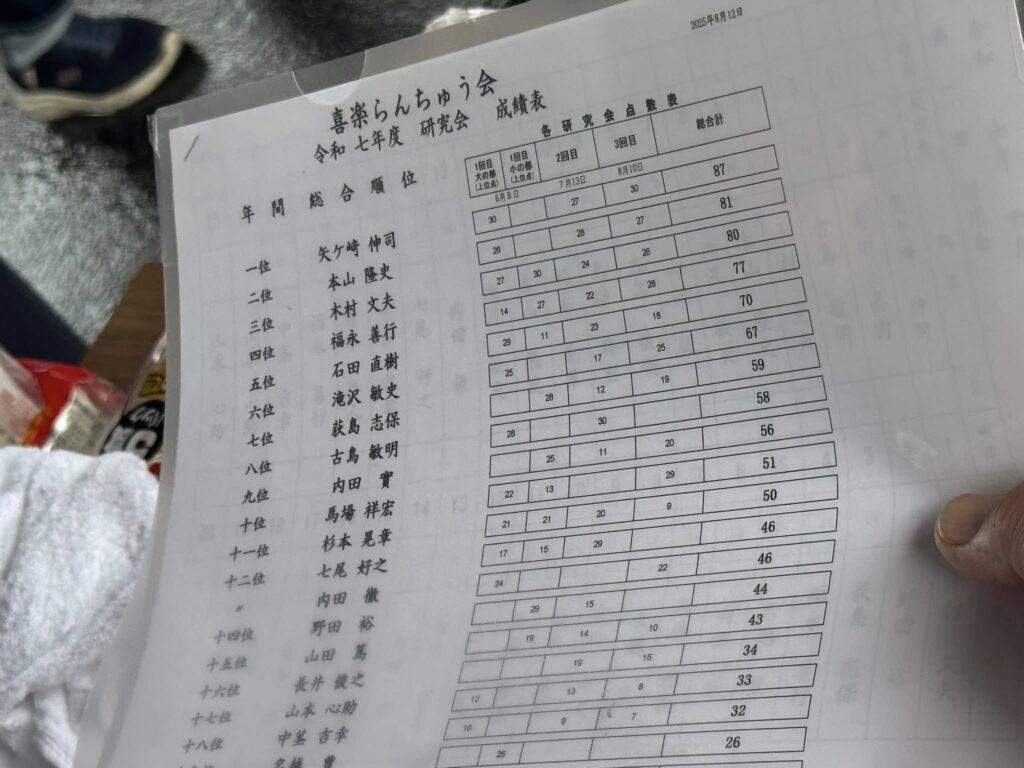 2025年8月12日
喜楽らんちゅう会
令和 七年度 研究会 成績表
年間 総合順位
各研究会点数表
1回目 大の部 (上位点) 1回目 小の部 (上位点) 2回目 3回目 総合計
6月8日 7月13日 8月10日
一位 矢ケ崎 伸司 30 27 30 87
二位 本山 隆史 26 28 27 81
三位 木村 文夫 27 30 24 26 80
四位 福永 善行 14 27 22 28 77
五位 石田 直樹 29 11 23 18 70
六位 滝沢 敏史 25 17 25 67
七位 荻島 志保 28 12 19 59
八位 古島 敏明 28 30 58
九位 内田 實 25 11 20 56
十位 馬場 祥宏 22 13 29 51
十一位 杉本 晃章 21 21 20 9 50
十二位 七尾 好之 17 15 29 46
〃 内田 徹 24 22 46
十四位 野田 裕 29 15 44
十五位 山田 篤 19 14 10 43
十六位 長井 俊之 19 15 34
十七位 山本 心助 12 13 8 33
十八位 中茎 吉幸 16 9 7 32
名越 豊 26 26